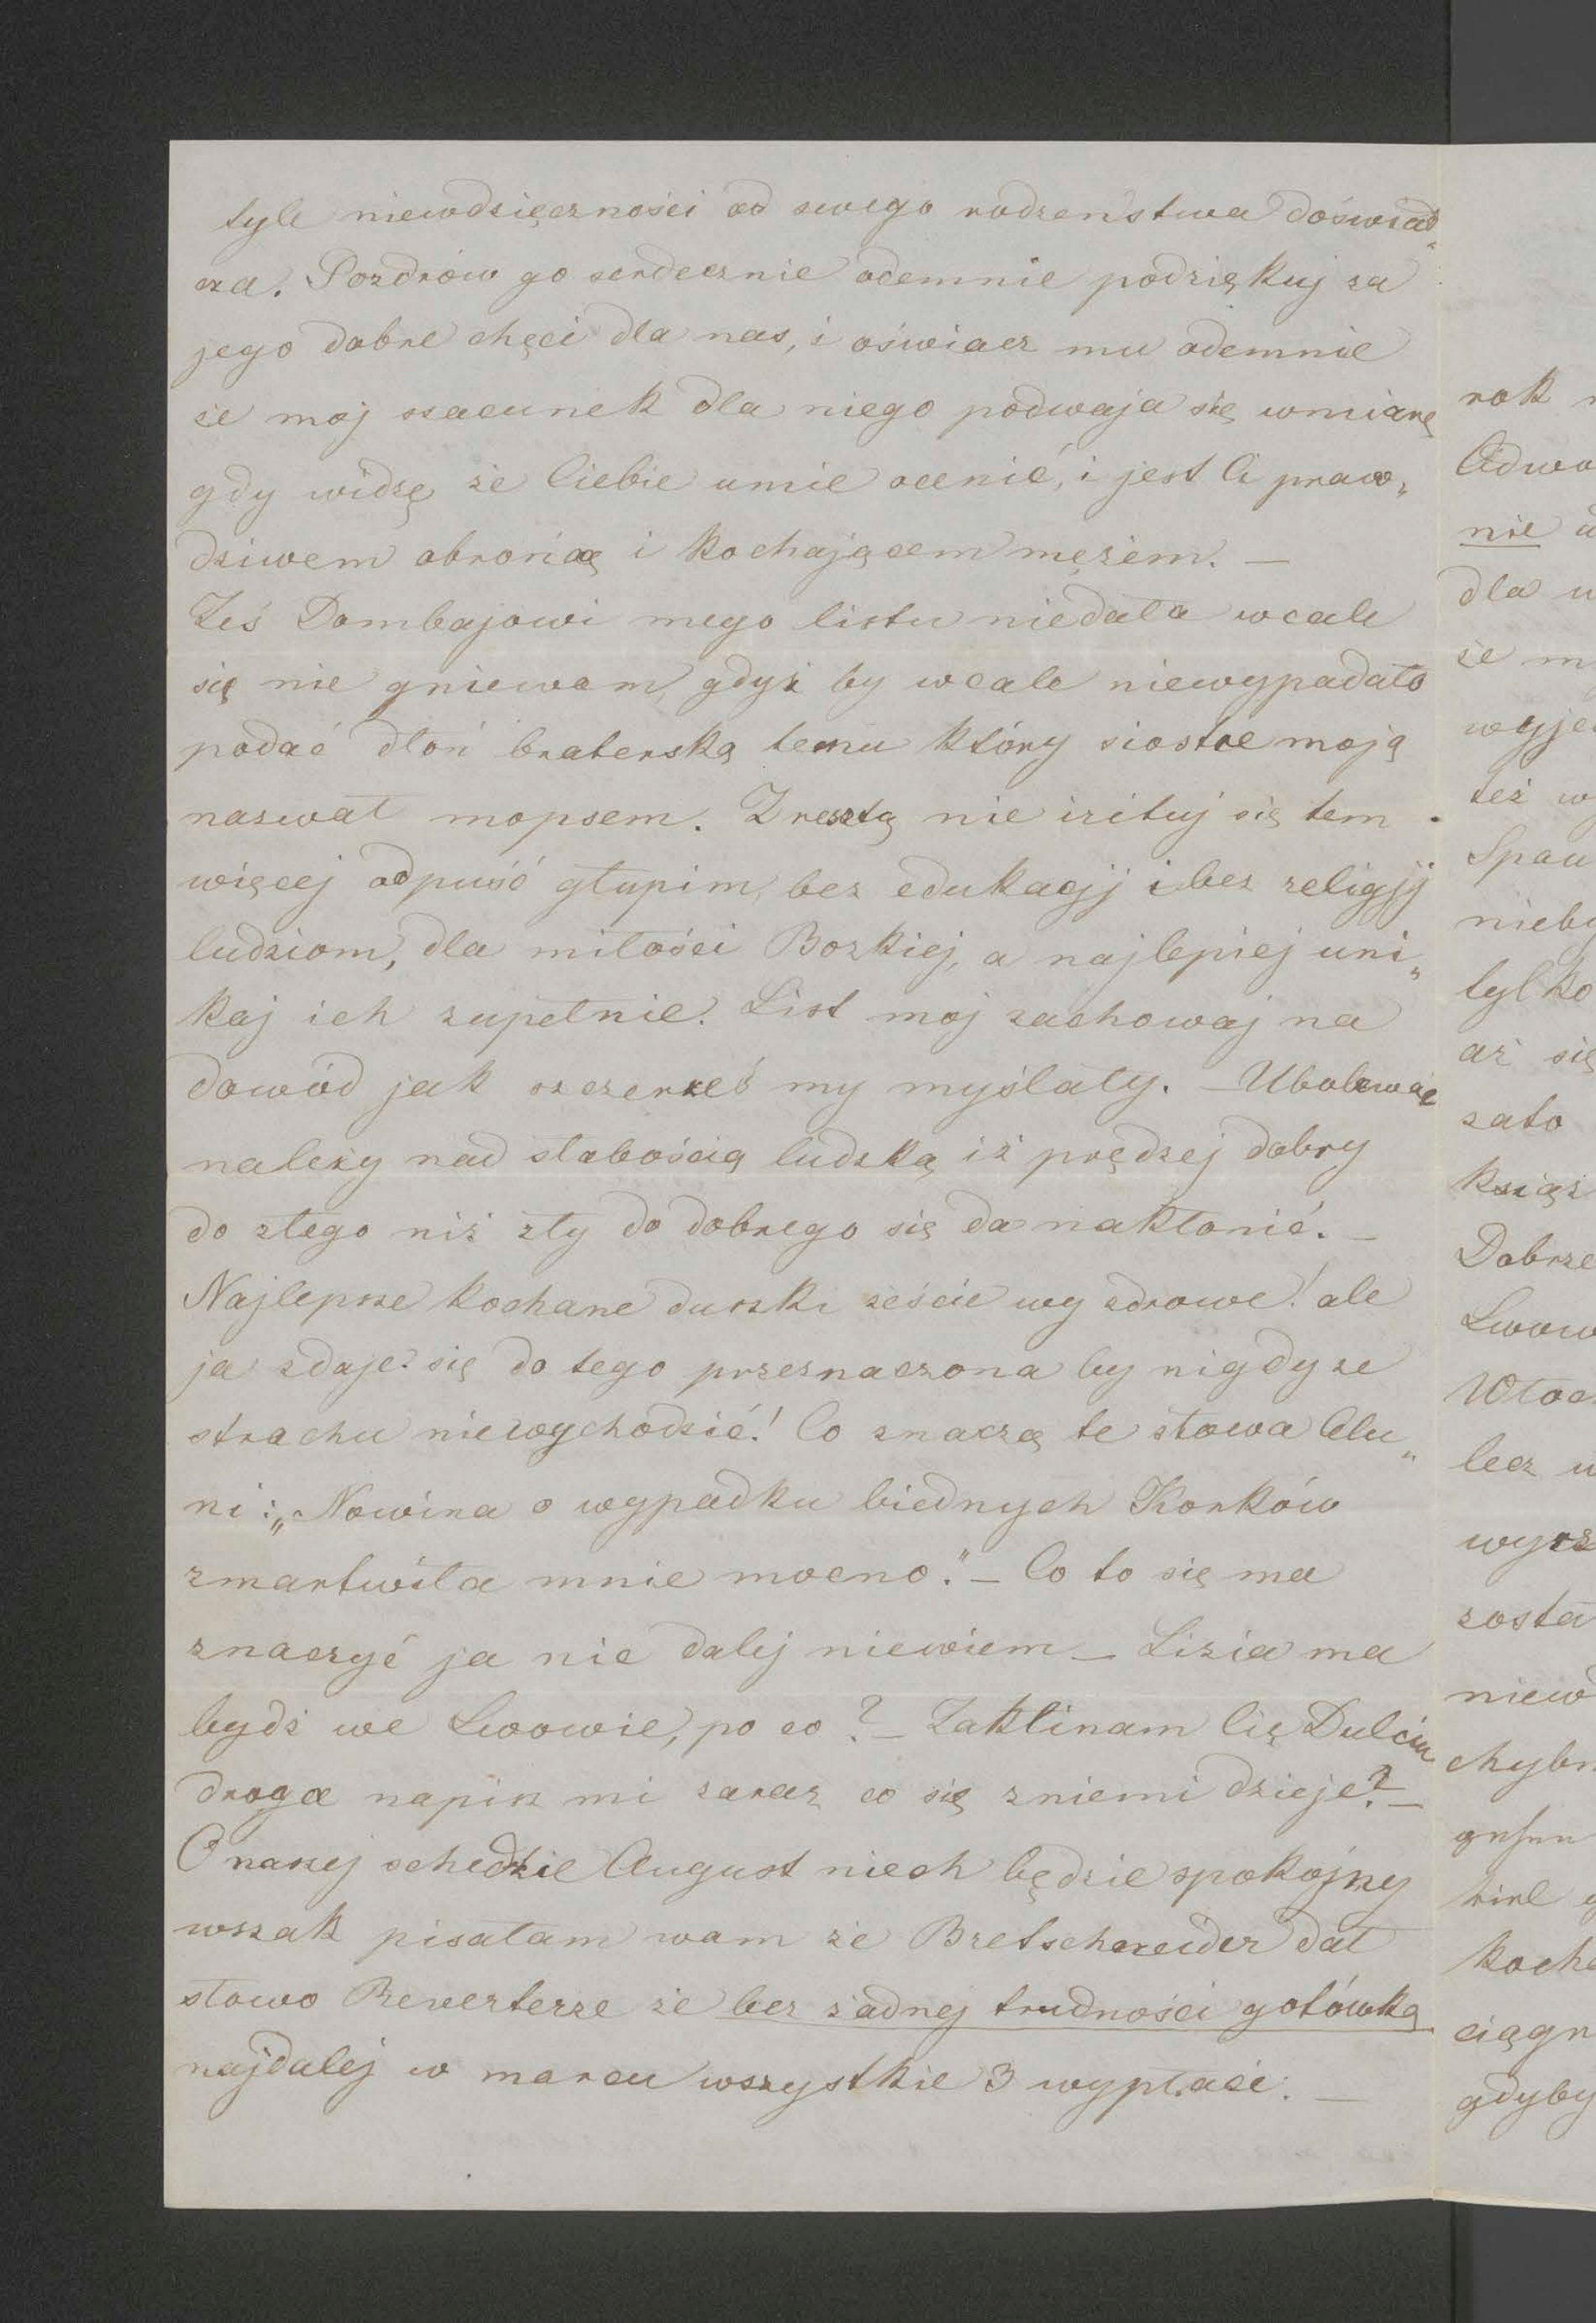 tyle niewdzięczności od swego rodzeństwa doświad„
cza. Pozdrów go serdecznie odemnie podziękuj za
jego dobre chęci dla nas, i oświacz mu odemnie
że moj szacunek dla niego podwaja się wmiarę
gdy widzę że Ciebie umie ocenić, i jest Ci praw„
dziwem obrońcą i kochającem mężem. —
Żeś Dombajowi mego listu niedała wcale
się nie gniewam, gdyż by wcale niewypadało
podać dłoń braterską temu który siostre moją
nazwał mopsem. Zresztą nie irituj się tem
więcej odpuść głupim, bez edukacjj i bez religjj
ludziom, dla miłości Bozkiej, a najlepiej uni„
kaj ich zupełnie. List moj zachowaj na
dowód jak szczerześ my myślały. — Ubolewać
należy nad słabością ludzką iż prędzej dobry
do złego niż zły do dobrego się da nakłonić. —
Najlepsze kochane duszki żeście wy zdrowe! ale
ja zdaje się do tego przeznaczona by nigdy ze
strachu niewychodzić! Co znaczą te słowa Olu„
ni: „Nowina o wypadku biednych Korków
zmartwiła mnie mocno." — Co to się ma
znaczyć ja nic dalej niewiem — Lizia ma
bydź we Lwowie, po co? — Zaklinam Cię Dulciu
droga napisz mi zaraz co się zniemi dzieje? —
O naszej schedzie August niech będzie spokojny
wszak pisałam wam że Bretschneider dał
słowo Reverterze że bez żadnej trudności gotówką
najdalej w marcu wszystkie 3 wypłaci. —
rok
nie
dla
że
też
tylko
aż się
zato
Dobrze
lecz
gdyby